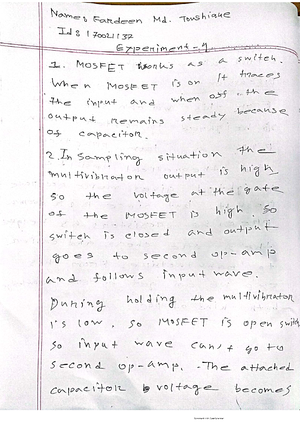 Name: Fardeen Md. Toushique
Id: 17002 1 132
Experiment - 7
1. MOSFET works as a switch.
When MOSFET is on it traces
the input and when off the
output remains steady because
of capacitor.
2. In sampling situation the
multivibrator output is high
so the voltage at the gate
of the MOSFET is high. So
switch is closed and output
goes to second op-amp
and follows input wave.
During holding the multivibrator
is low. So MOSFET is open switch
so input wave can't go to
second op-amp. The attached
capacitor voltage becomes